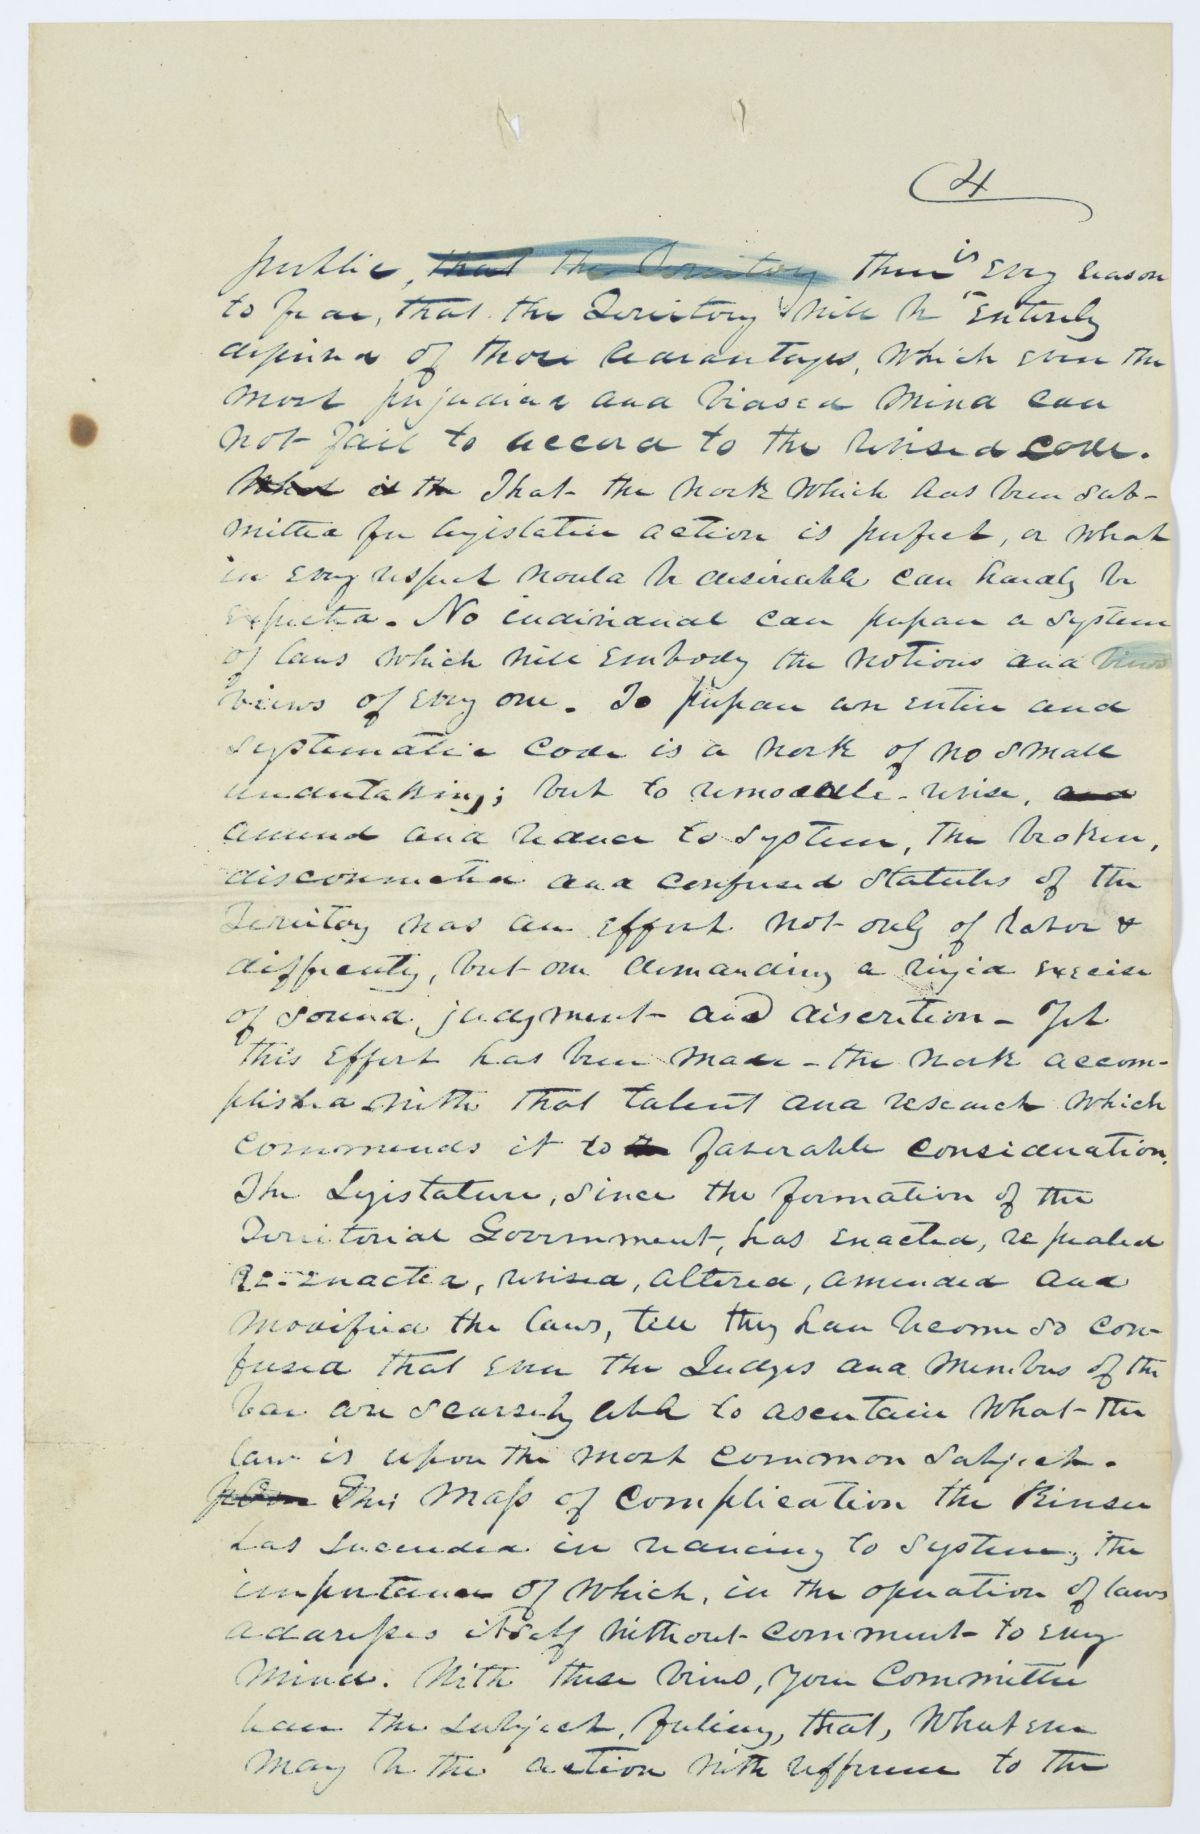 4
public, ~~that the Territory~~ there is every reason
to fear, that the Territory will be entirely
deprived of those advantages, which even the
most prejudiced and biased mind can
not fail to accord to the revised code.
~~What is the~~ That the work which has been sub-
mitted for legislative action is perfect, or what
in every respect would be desirable can hardly be
expected. No individual can prepare a system
of laws which will embody the notions and ~~views~~
views of every one. To prepare an entire and
systematic code is a work of no small
undertaking; but to remodele - revise, ~~and~~
amend and reduce to system, the broken,
disconnected and confused statutes of the
Territory was an effort not only of labor &
difficulty, but one demanding a rigid exercise
of sound judgment and discretion - Yet
this effort has been made - the work accom-
plished with that talent and research which
commends it to ~~the~~ favorable consideration.
The Legislature, since the formation of the
Territorial Government, has enacted, repealed
re-enacted, revised, altered, amended and
modified the laws, till they have become so con-
fused that even the Judges and members of the
bar are scarsely able to ascertain what the
law is upon the most common subject.
This mass of complication the Reviser
has succeeded in reducing to system; the
importance of which, in the operation of laws
addresses itself without comment to every
mind. With these views, your Committee
leave the subject, feeling, that, whatever
may be the action with refference to the